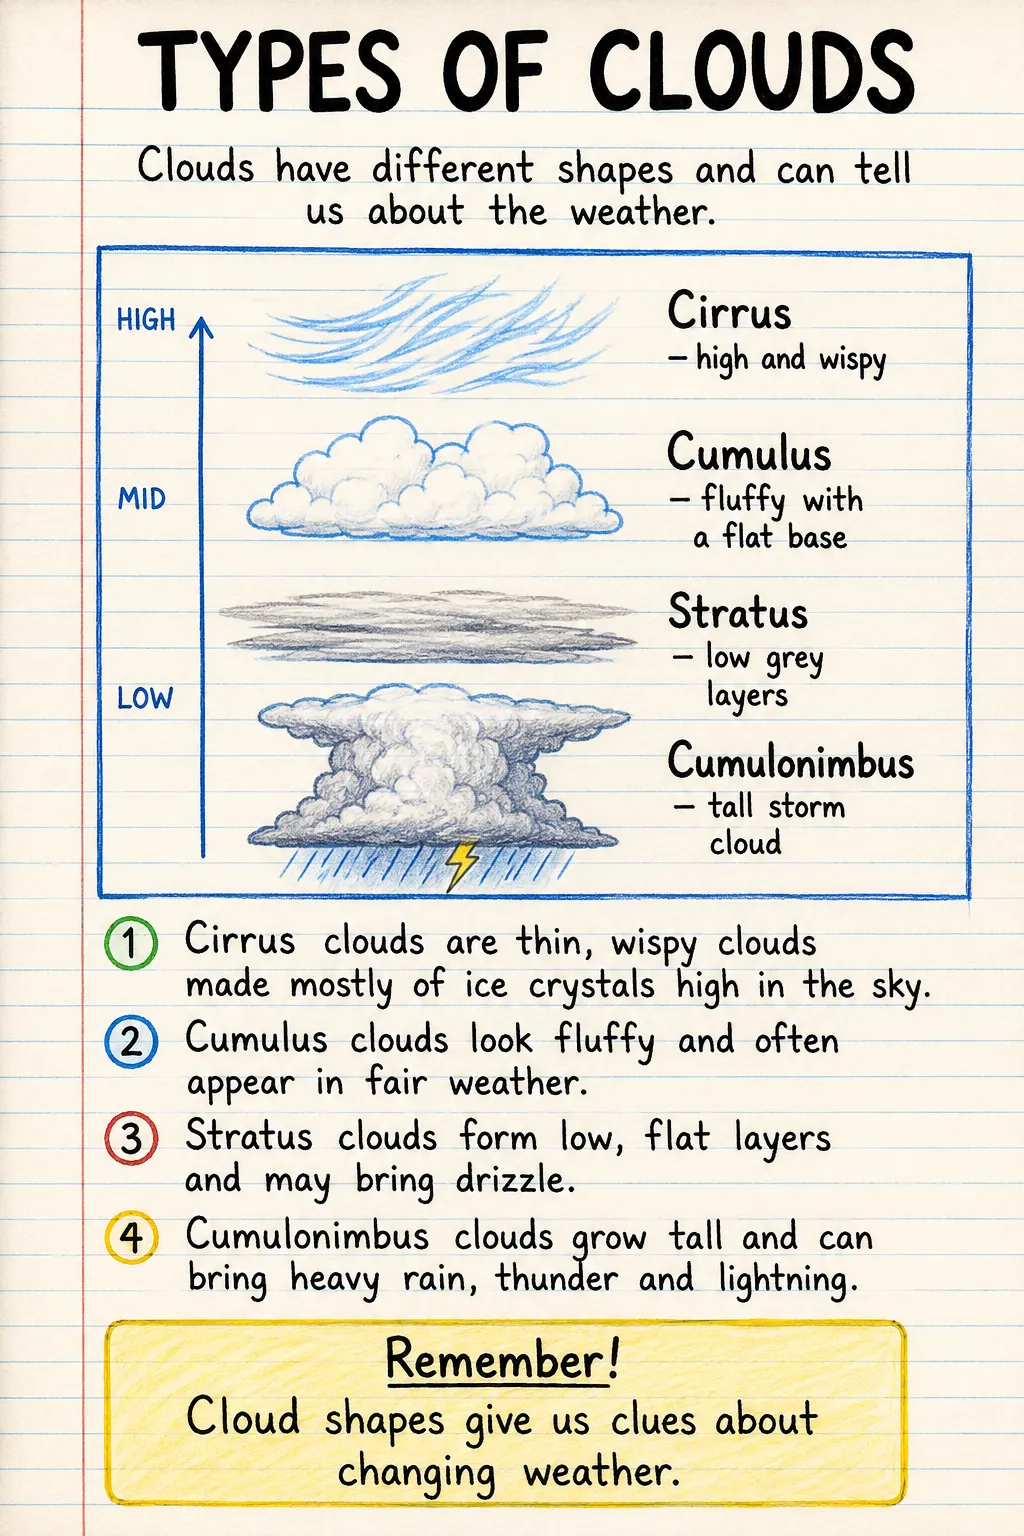 TYPES OF CLOUDS
Clouds have different shapes and can tell
us about the weather.
HIGH
Cirrus
– high and wispy
MID
Cumulus
– fluffy with
a flat base
Stratus
– low grey
layers
LOW
Cumulonimbus
– tall storm
cloud
1 Cirrus clouds are thin, wispy clouds
made mostly of ice crystals high in the sky.
2 Cumulus clouds look fluffy and often
appear in fair weather.
3 Stratus clouds form low, flat layers
and may bring drizzle.
4 Cumulonimbus clouds grow tall and can
bring heavy rain, thunder and lightning.
Remember!
Cloud shapes give us clues about
changing weather.